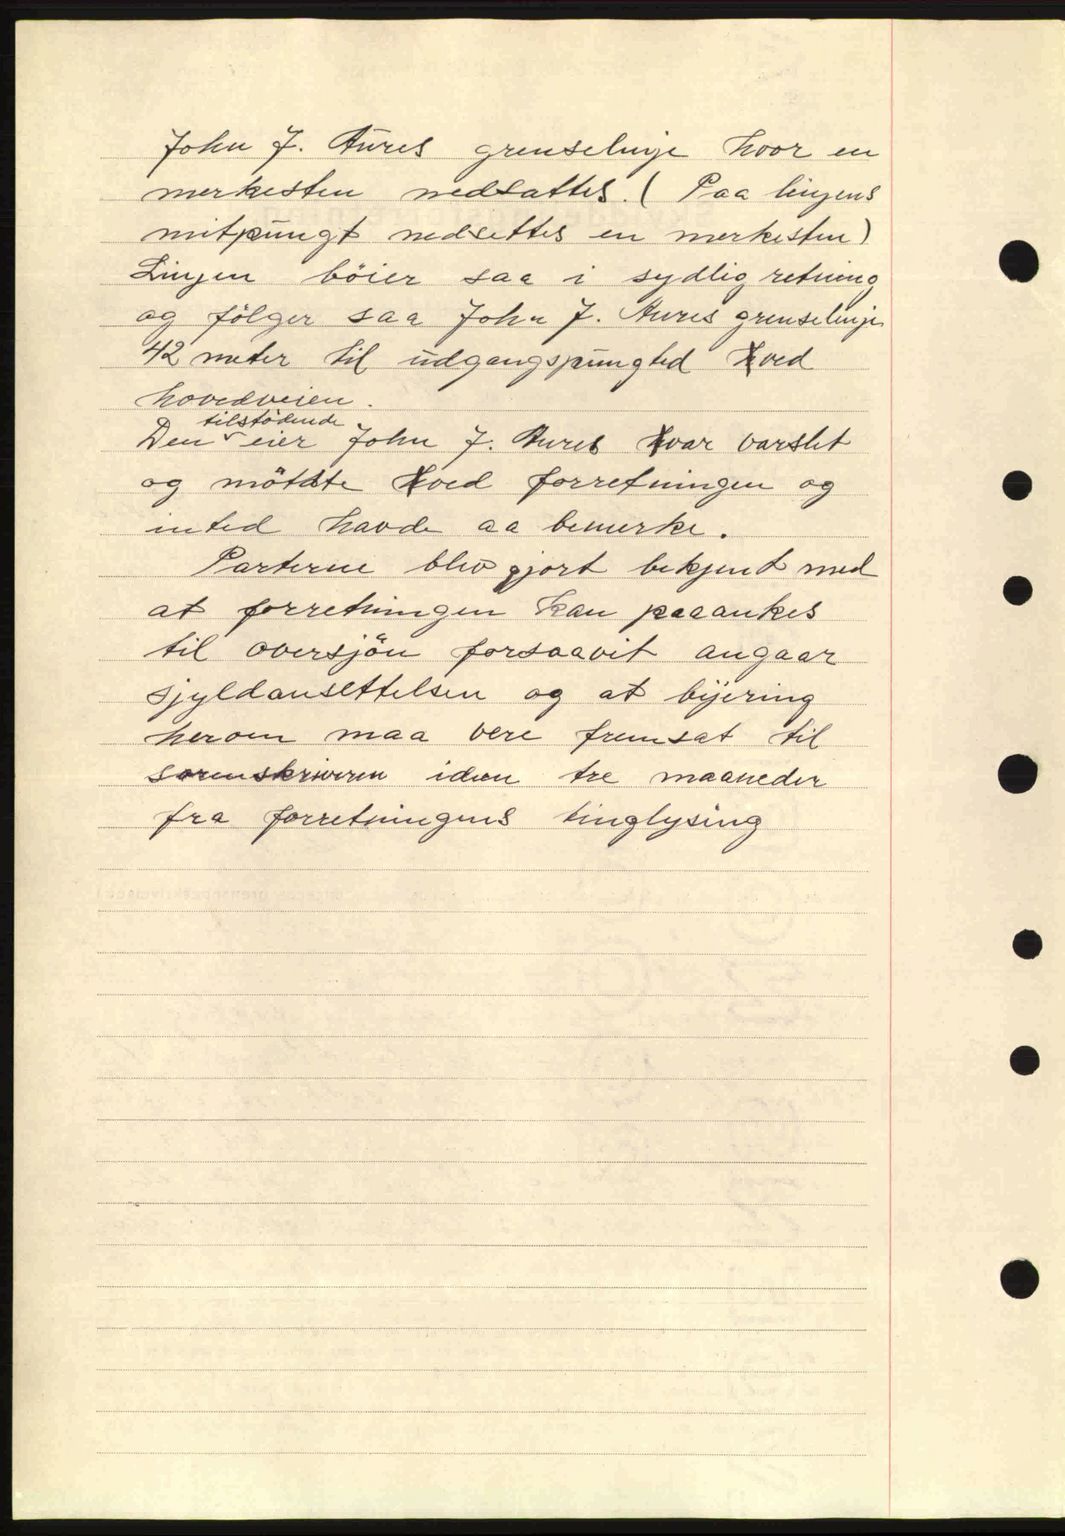 John J. Aures grenselinje hvor en
merkesten nedsattes. ( Paa linjens
mitpungt nedsettes en merkesten)
Linjen böier saa i sydlig retning
og fölger saa John J. Aures grenselinje
42 meter til udgangspungted ved
hovedveien.
tilstödende
Den eier John J. Aures var varslet
og mötdte ved forretningen og
inted havde aa bemerke.
Parterne blev gjort bekjent med
at forretningen kan paaankes
til oversjön forsaavit angaar
sjyldansettelsen og at bijering
herom maa vere fremsat til
sorenskriveren iden tre maaneder
fra forretningens tinglysing